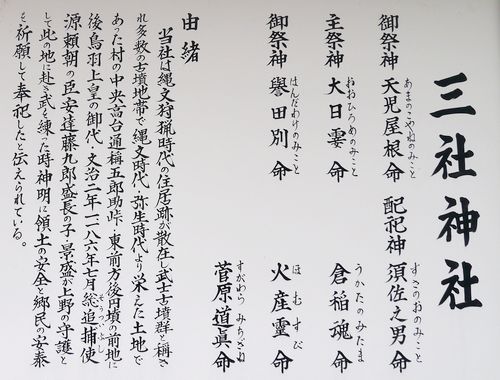 三社神社
御祭神 天児屋根命 配祀神 須佐之男命
あまのこやねのみこと すさのおのみこと
主祭神 大日孁命 倉稲魂命
おおひるめのみこと うかたのみたま
御祭神 譽田別命 火産霊命
ほんだわけのみこと ほむすび
菅原道眞命
すがわらみちざね
由緒
当社は縄文狩猟時代の住居跡が散在し武士古墳群と称さ
れ多数の古墳地帯で縄文時代・弥生時代より栄えた土地で
あった村の中央高台通称五郎助峠・東前方後円墳の前地に
後鳥羽上皇の御代・文治二年一一八六年七月総追捕使
そうついぶし
源頼朝の臣安達藤九郎盛長の子景盛が上野の守護と
して此の地に赴き武を練った時神明に領土の安全と郷民の安泰
を祈願して奉祀したと伝えられている。